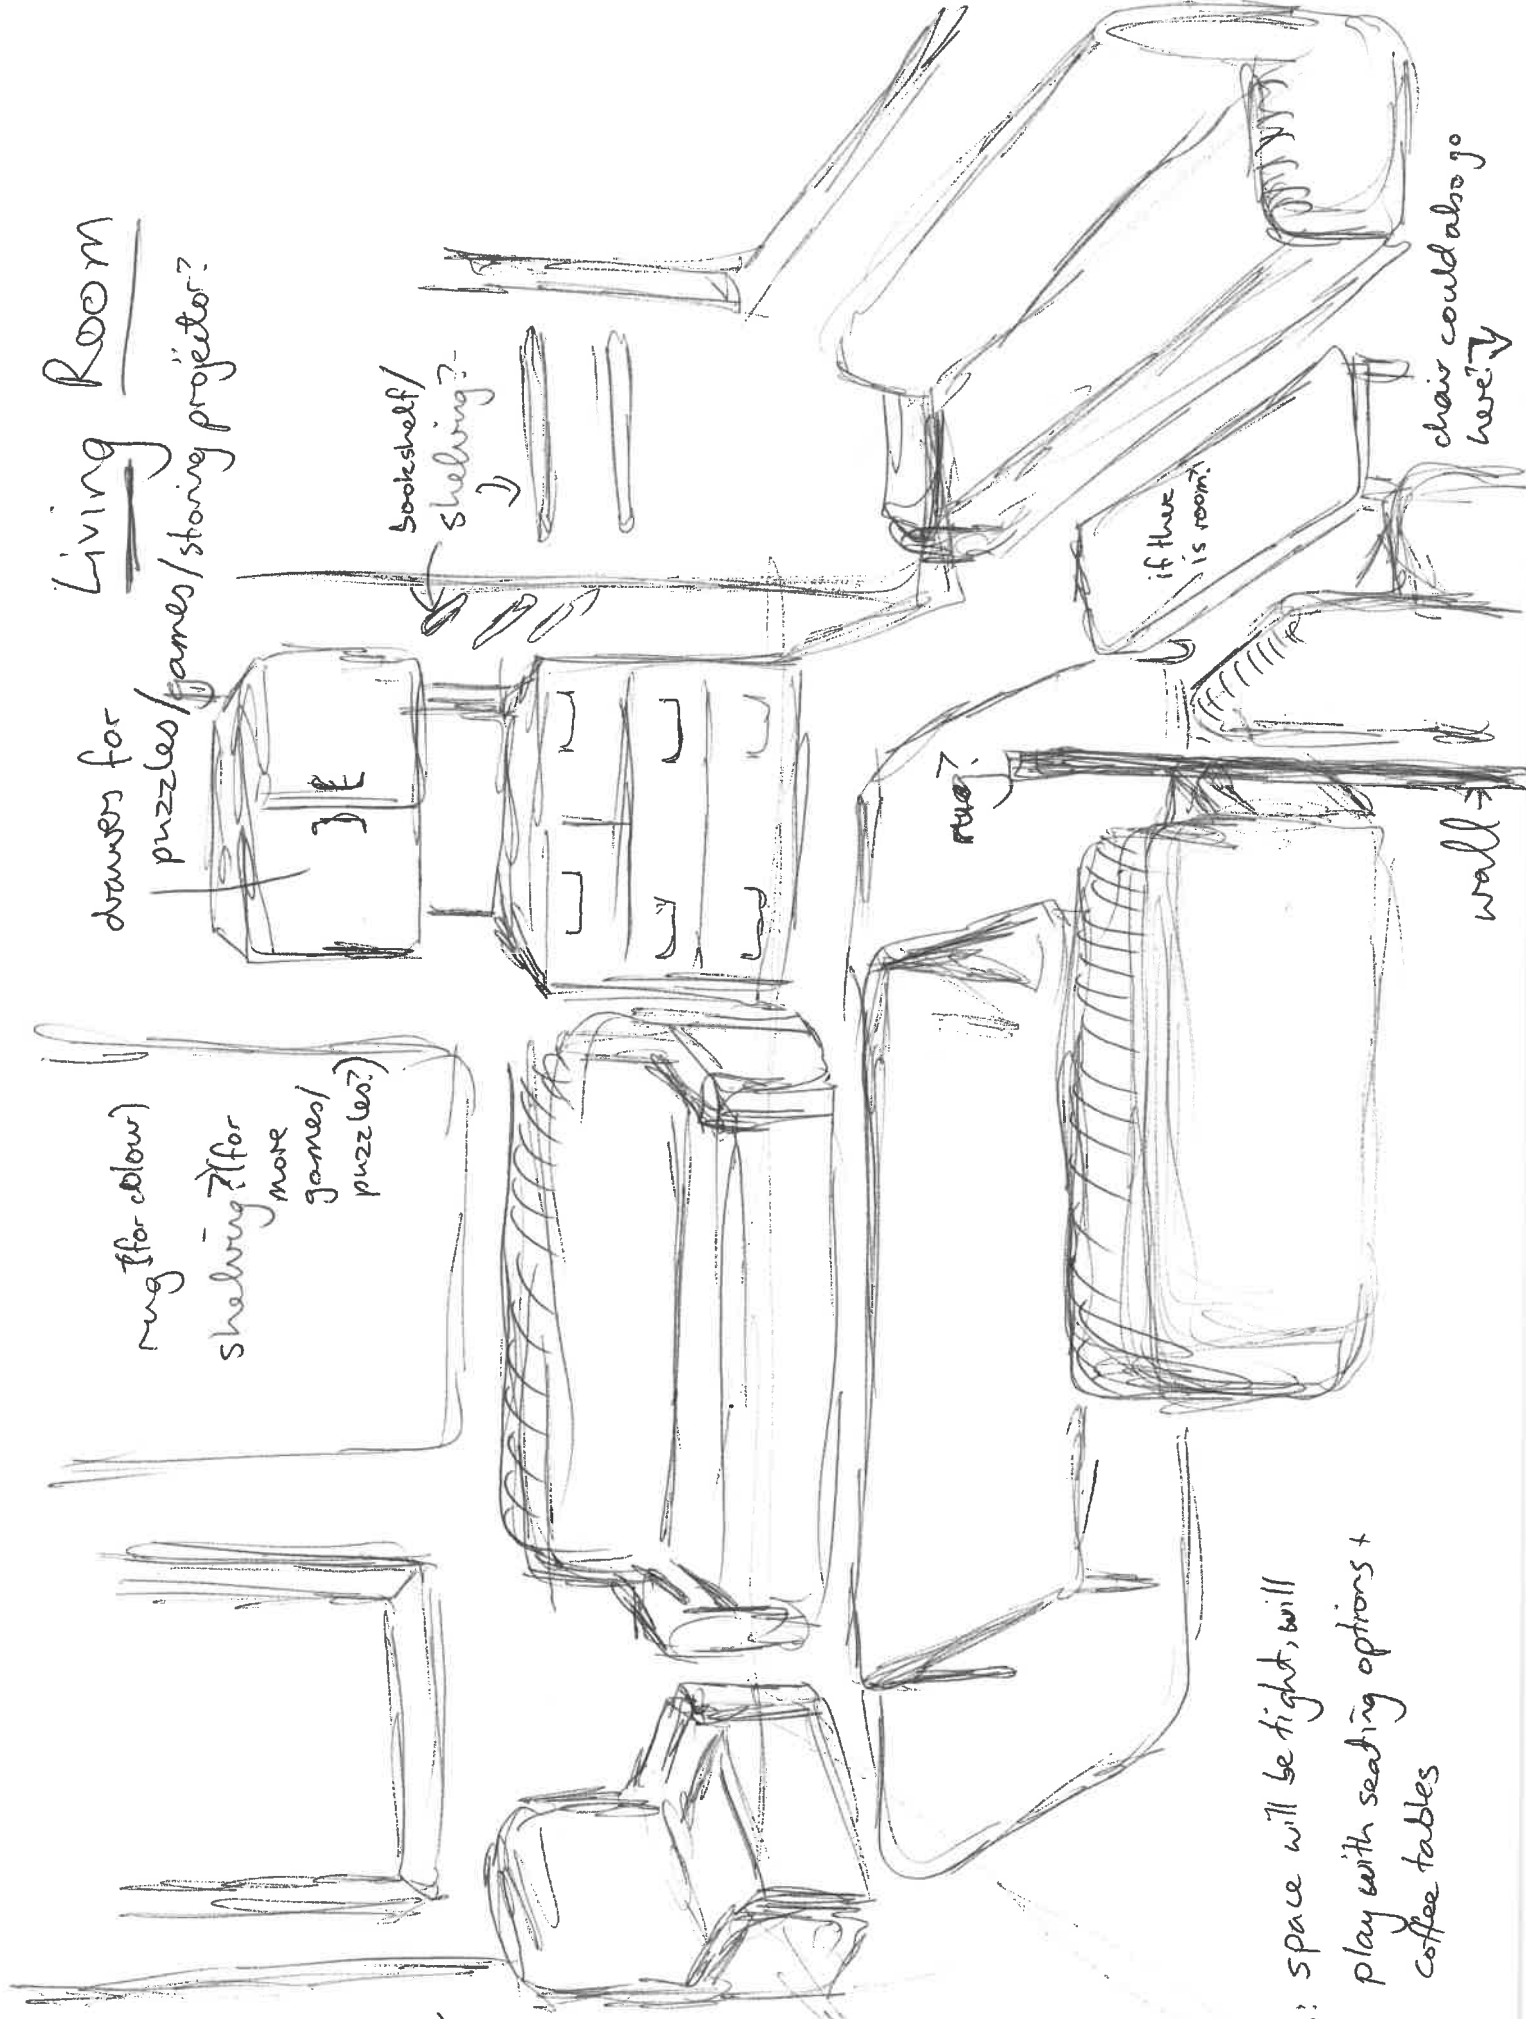 Living Room
drawers for
puzzles/games/storing projector?
rug? (for colour)
shelving? (for
more
games/
puzzles?)
bookshelf/
shelving?
rug?
if there
is room?
chair could also go
here?
wall →
space will be tight, will
play with seating options +
coffee tables